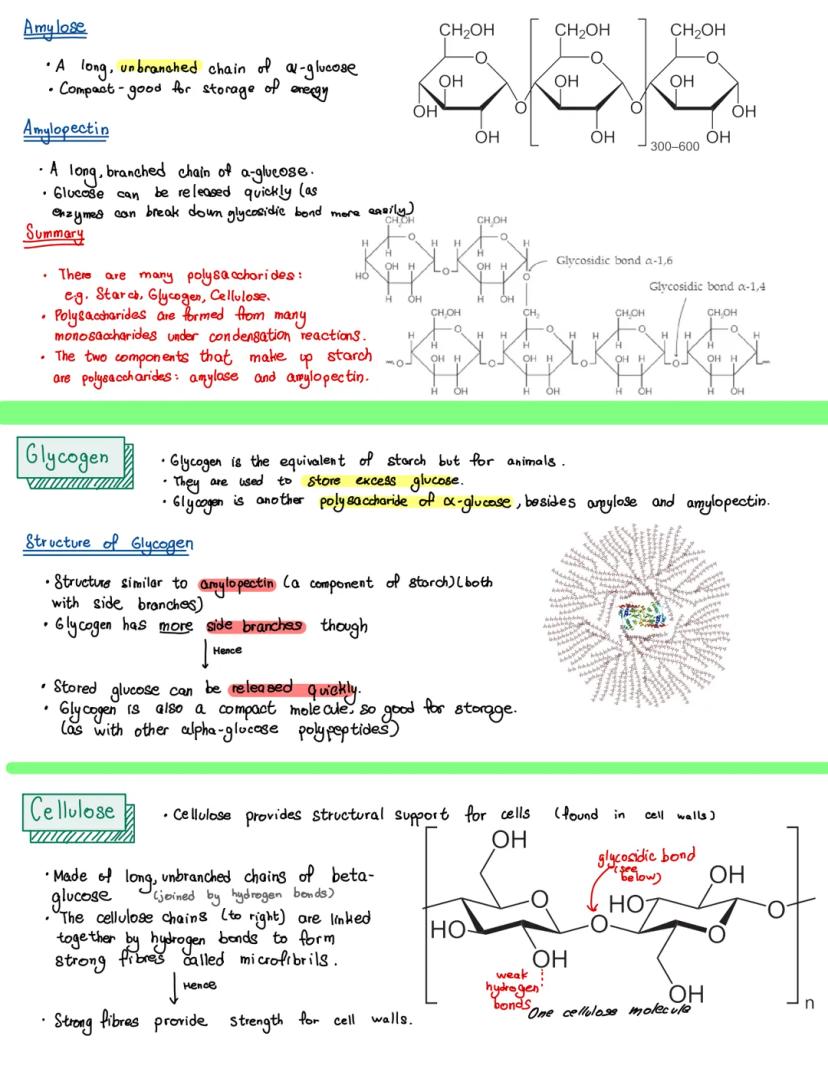 Amylose
• A long, unbranched chain of α-glucose
• Compact - good for storage of energy
Amylopectin
• A long, branched chain of α-glucose.
• Glucose can be released quickly (as
enzymes can break down glycosidic bond more easily)
CH2OH CH2OH CH2OH
O O O
OH OH OH
OH O O OH
OH OH OH
300–600
Summary
• There are many polysaccharides:
e.g. Starch, Glycogen, Cellulose.
• Polysaccharides are formed from many
monosaccharides under condensation reactions.
• The two components that make up starch
are polysaccharides: amylose and amylopectin.
CH2OH CH2OH
H O H H O H
H H
OH H OH H
HO O O
H OH H OH
Glycosidic bond α-1,6
Glycosidic bond α-1,4
CH2OH CH2 CH2OH CH2OH
H O H H O H H O H H O H
H H H H
OH H OH H OH H OH H
O O O O O
H OH H OH H OH H OH
Glycogen
• Glycogen is the equivalent of starch but for animals.
• They are used to store excess glucose.
• Glycogen is another polysaccharide of α-glucose, besides amylose and amylopectin.
Structure of Glycogen
• Structure similar to amylopectin (a component of starch)(both
with side branches)
• Glycogen has more side branches though
Hence
• Stored glucose can be released quickly.
• Glycogen is also a compact molecule, so good for storage.
(as with other alpha-glucose polypeptides)
Cellulose
• Cellulose provides structural support for cells (found in cell walls)
• Made of long, unbranched chains of beta-
glucose (joined by hydrogen bonds)
• The cellulose chains (to right) are linked
together by hydrogen bonds to form
strong fibres called microfibrils.
Hence
• Strong fibres provide strength for cell walls.
OH
glycosidic bond
(see
below)
OH
O HO O
HO O O
OH
weak
hydrogen
bonds
OH
n
One cellulose molecule